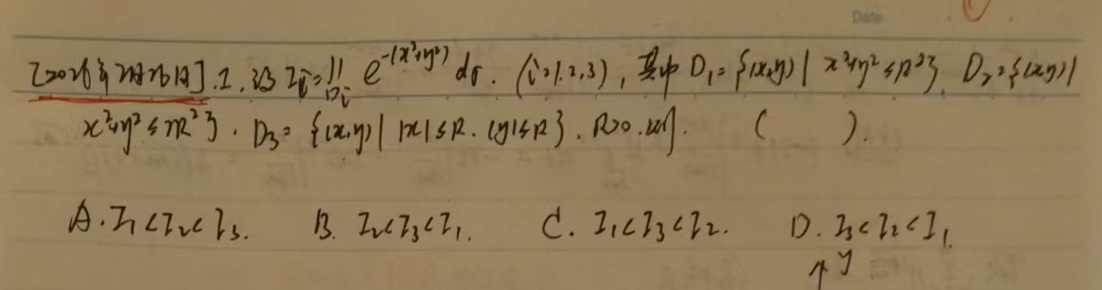 Date
[2026年2月26日].1.设 I_i=∬_{D_i} e^{-(x²+y²)} dσ.(i=1,2,3),其中D₁={(x,y)| x²+y²≤R²}, D₂={(x,y)|
x²+y²≤2R²}. D₃={(x,y)| |x|≤R. |y|≤R}. R>0.则. ( ).
A. I₁<I₂<I₃. B. I₂<I₃<I₁. C. I₁<I₃<I₂. D. I₃<I₂<I₁.
y